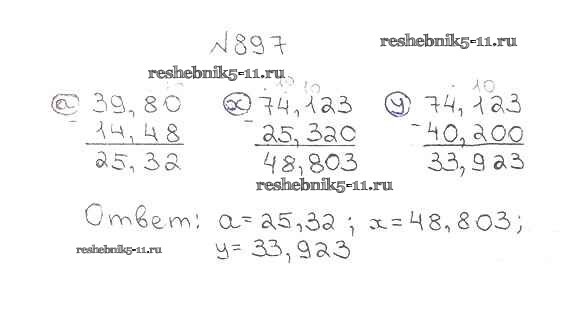 №897
reshebnik5-11.ru
reshebnik5-11.ru
10 10 10
а 39,80 х 74,123 у 74,123
- 14,48 - 25,320 - 40,200
25,32 48,803 33,923
reshebnik5-11.ru
Ответ: а=25,32; х=48,803;
reshebnik5-11.ru
у=33,923